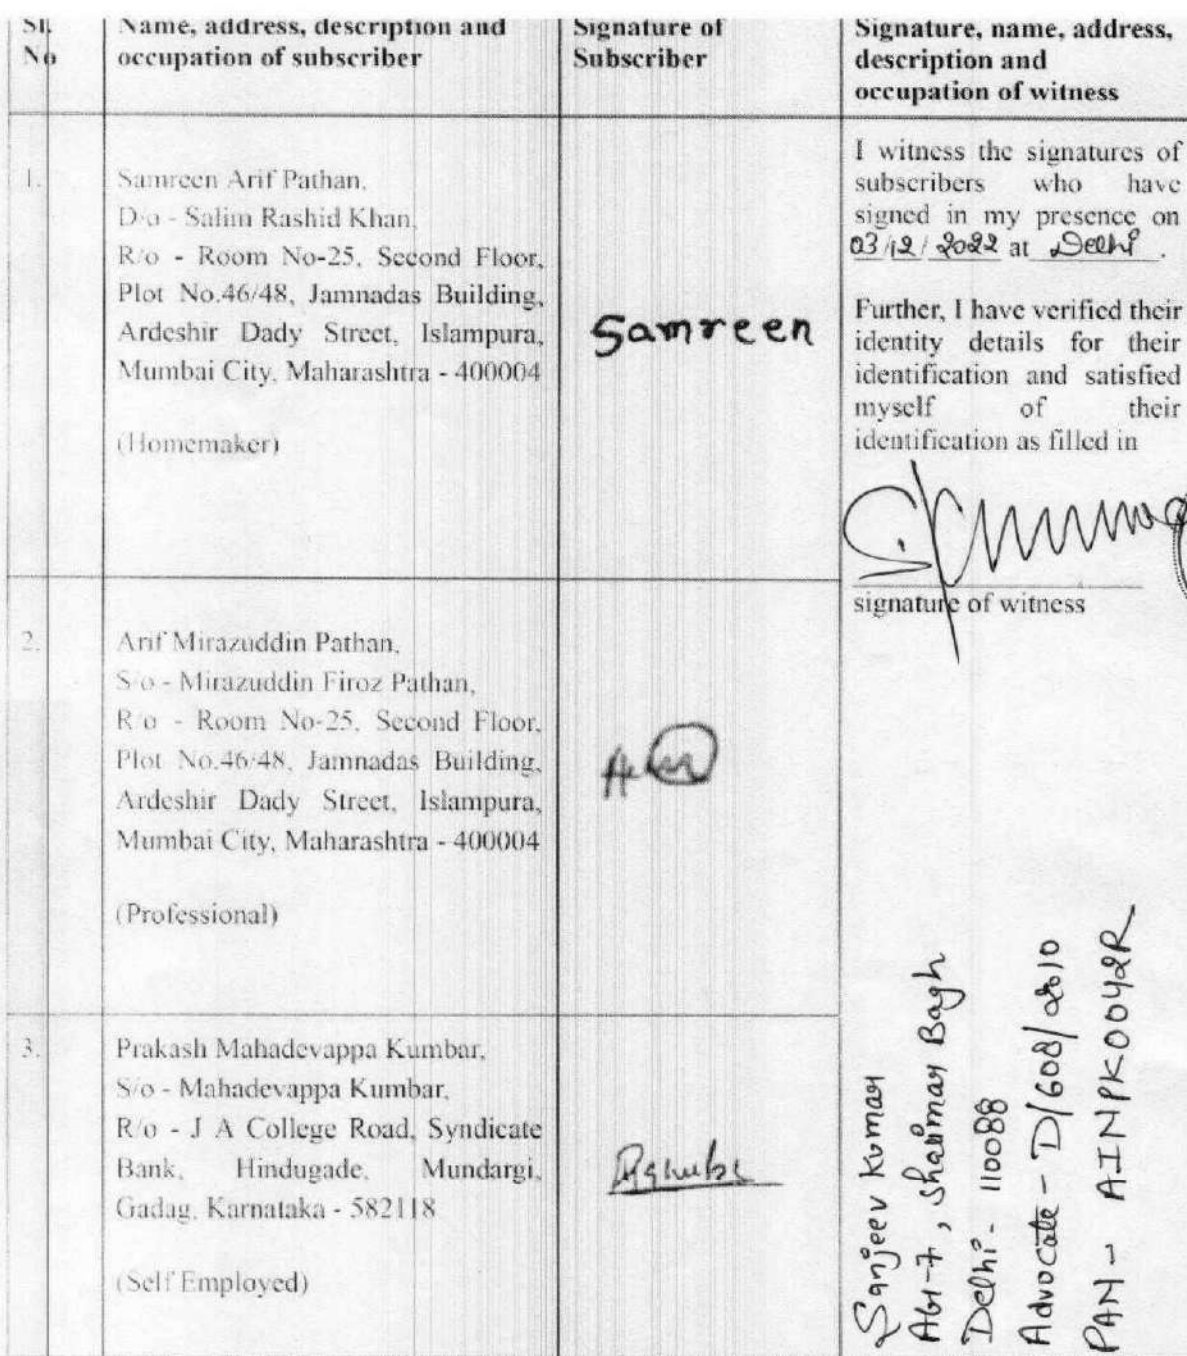 Sl. No
Name, address, description and
occupation of subscriber
Signature of
Subscriber
Signature, name, address,
description and
occupation of witness
1.
Samreen Arif Pathan,
D/o - Salim Rashid Khan,
R/o - Room No-25, Second Floor,
Plot No.46/48, Jamnadas Building,
Ardeshir Dady Street, Islampura,
Mumbai City, Maharashtra - 400004
(Homemaker)
Samreen
I witness the signatures of
subscribers who have
signed in my presence on
03/12/2022 at Delhi.
Further, I have verified their
identity details for their
identification and satisfied
myself of their
identification as filled in
signature of witness
2.
Arif Mirazuddin Pathan,
S/o - Mirazuddin Firoz Pathan,
R/o - Room No-25, Second Floor,
Plot No.46/48, Jamnadas Building,
Ardeshir Dady Street, Islampura,
Mumbai City, Maharashtra - 400004
(Professional)
3.
Prakash Mahadevappa Kumbar,
S/o - Mahadevappa Kumbar,
R/o - J A College Road, Syndicate
Bank, Hindugade, Mundargi,
Gadag, Karnataka - 582118
(Self Employed)
Sanjeev Kumar
, Shalimar Bagh
Delhi - 110088
Advocate - D/608/2010
PAN - AINPK0042R